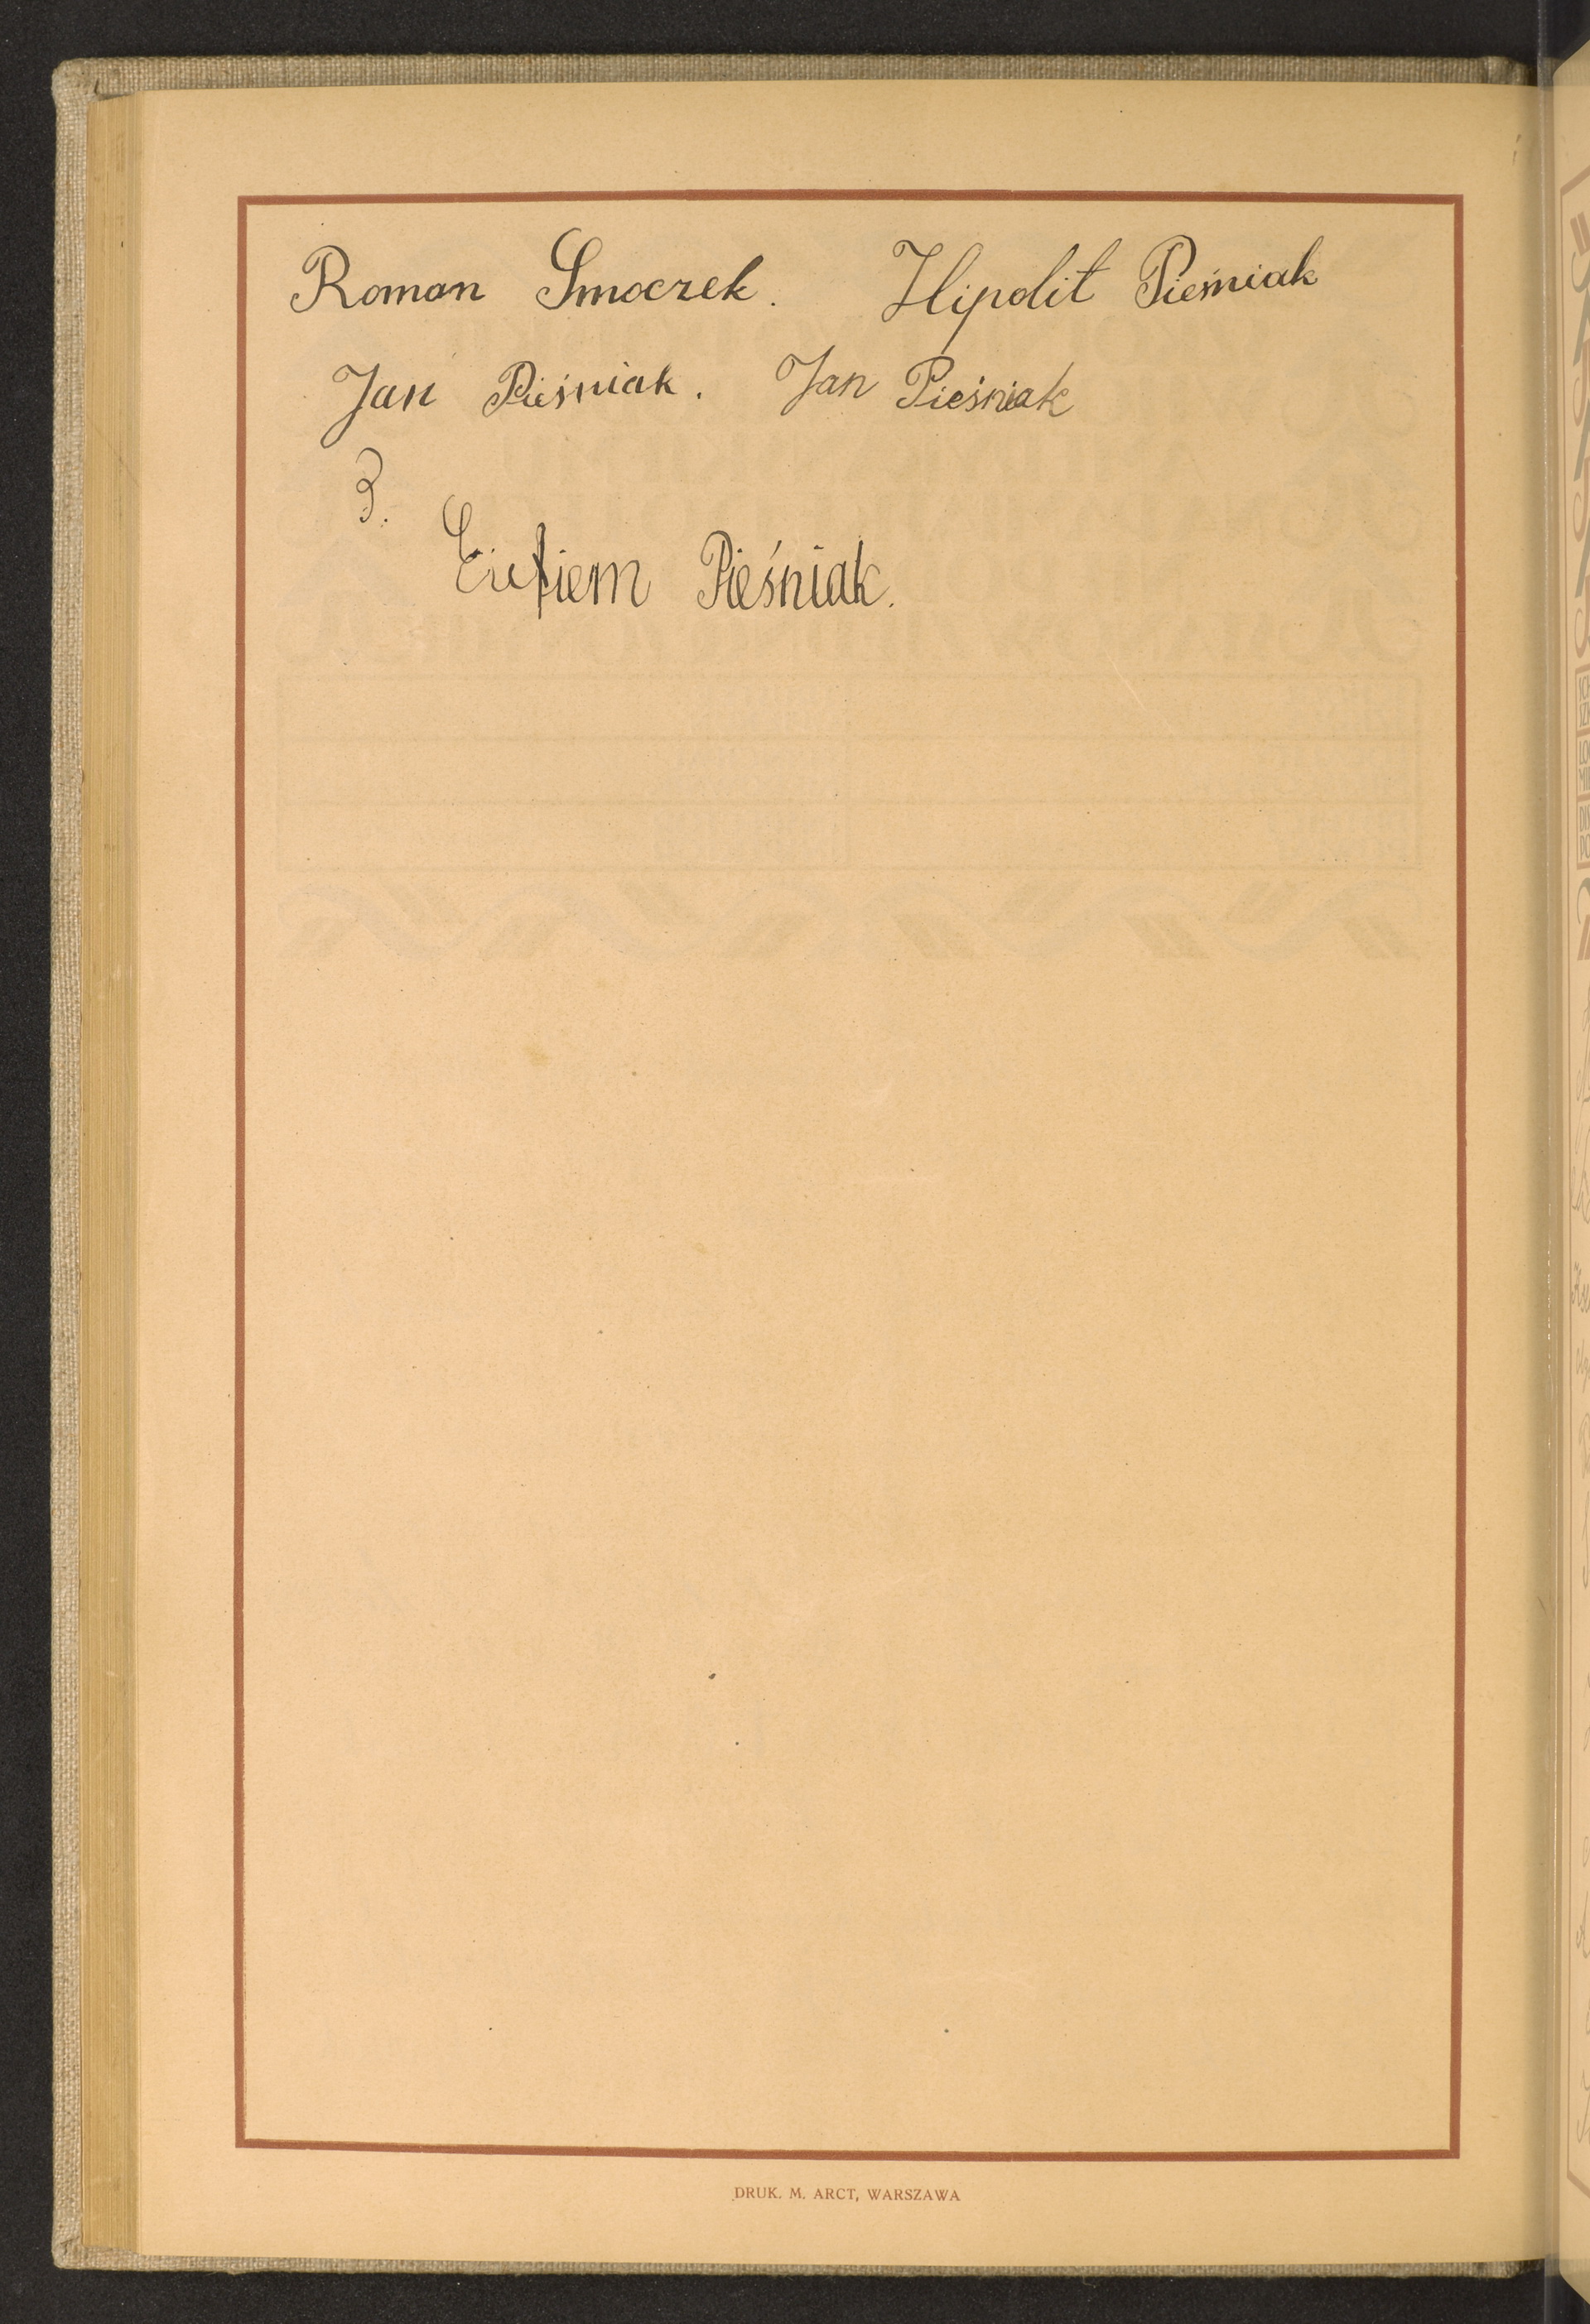 Roman Smoczek. Hipolit Pieśniak
Jan Pieśniak. Jan Pieśniak
3.
Pieśniak.
DRUK. M. ARCT, WARSZAWA